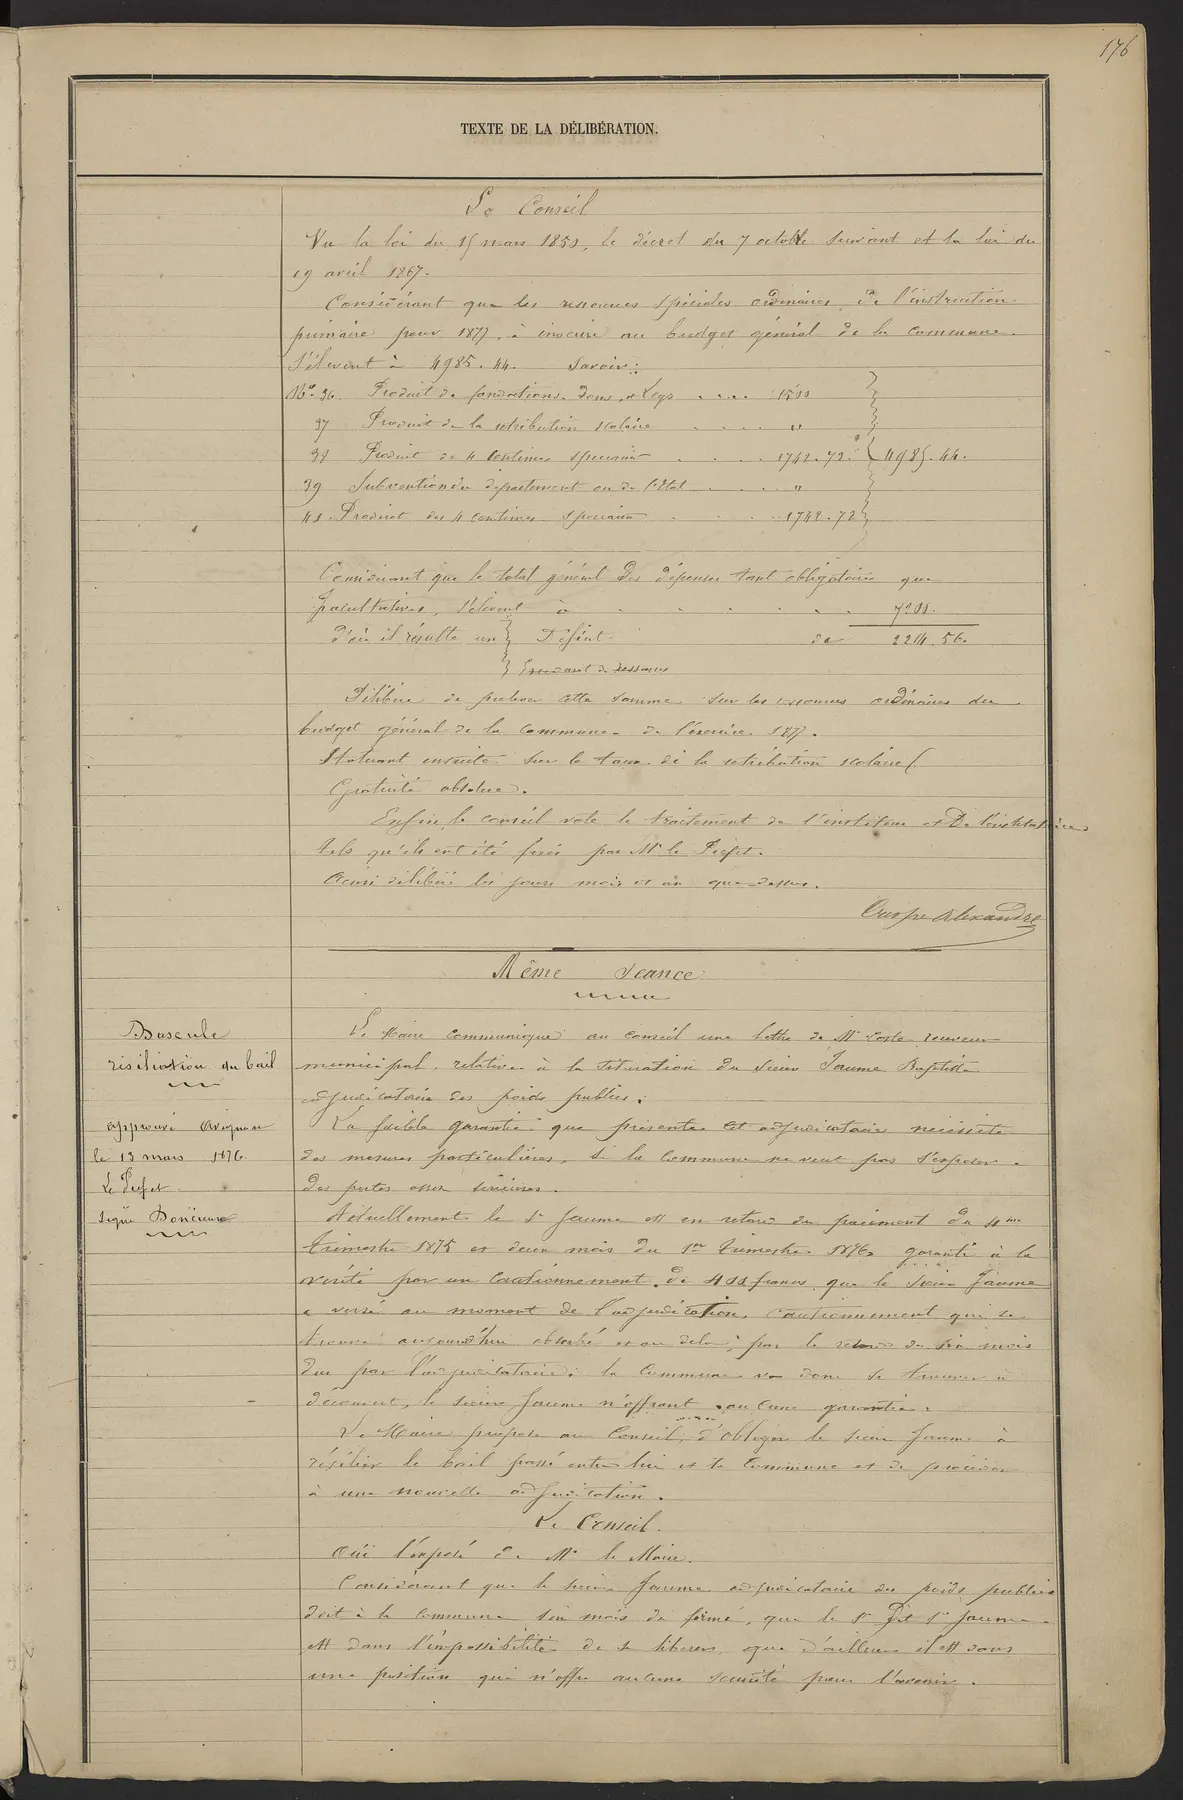 176
TEXTE DE LA DÉLIBÉRATION.
Le Conseil
Vu la loi du 15 mars 1850, le décret du 7 octobre suivant et la loi du
19 avril 1867.
Considérant que les ressources spéciales ordinaires de l'instruction
primaire pour 1877, à inscrire au budget général de la commune
s'élèvent à 4985.44. Savoir:
No. 36. Produit de fondations Dons, et Legs .... 1500
37 Produit de la rétribution scolaire .... "
38 Produit de 4 centimes spéciaux .... 1742.72. 4985.44.
39 Subvention du département ou de l'Etat .... "
40. Produit des 4 centimes spéciaux .... 1742.72
Considérant que le total général des dépenses tant obligatoires que
facultatives, s'élèvent à .... 7200.
d'où il résulte un Déficit de 2214.56.
Excédant de ressources
Délibère de prélever cette somme sur les ressources ordinaires du
budget général de la commune de l'exercice 1877.
Statuant ensuite sur le taux de la rétribution scolaire (
Gratuité absolue.
Enfin le conseil vote le traitement de l'instituteur et De l'institutrice
tels qu'ils ont été fixés par Mr le Préfet.
Ainsi délibéré les jours mois et an que dessus.
Alexandre
Même Séance
Bascule
résiliation du bail
approuvé Avignon
le 13 mars 1876.
Le Préfet
signé
Le Maire communique au conseil une lettre de Mr Coste receveur
municipal, relative à la situation du sieur Jaume Baptiste
adjudicataire des poids publics.
La faible garantie que présente cet adjudicataire nécessite
des mesures particulières, si la commune ne veut pas s'exposer à
des pertes assez sérieuses.
Actuellement le Sr Jaume est en retard du paiement du 4me
trimestre 1875 et deux mois du 1er trimestre 1876 garanti à la
vérité par un cautionnement de 400 francs que le sieur Jaume
a versé au moment de l'adjudication, cautionnement qui se
trouve aujourd'hui absorbé et au delà, par le retard de six mois
dus par l'adjudicataire; la commune va donc se trouver à
découvert, le sieur Jaume n'offrant aucune garantie.
Le Maire propose au Conseil, d'obliger le sieur Jaume à
résilier le bail passé entre lui et la Commune et de procéder
à une nouvelle adjudication.
Le Conseil.
Ouï l'exposé de Mr le Maire.
Considérant que le sieur Jaume adjudicataire des poids publics
doit à la commune six mois de ferme, que le Sr dit Sr Jaume
est dans l'impossibilité de se libérer, que d'ailleurs il est dans
une position qui n'offre aucune sécurité pour l'avenir.